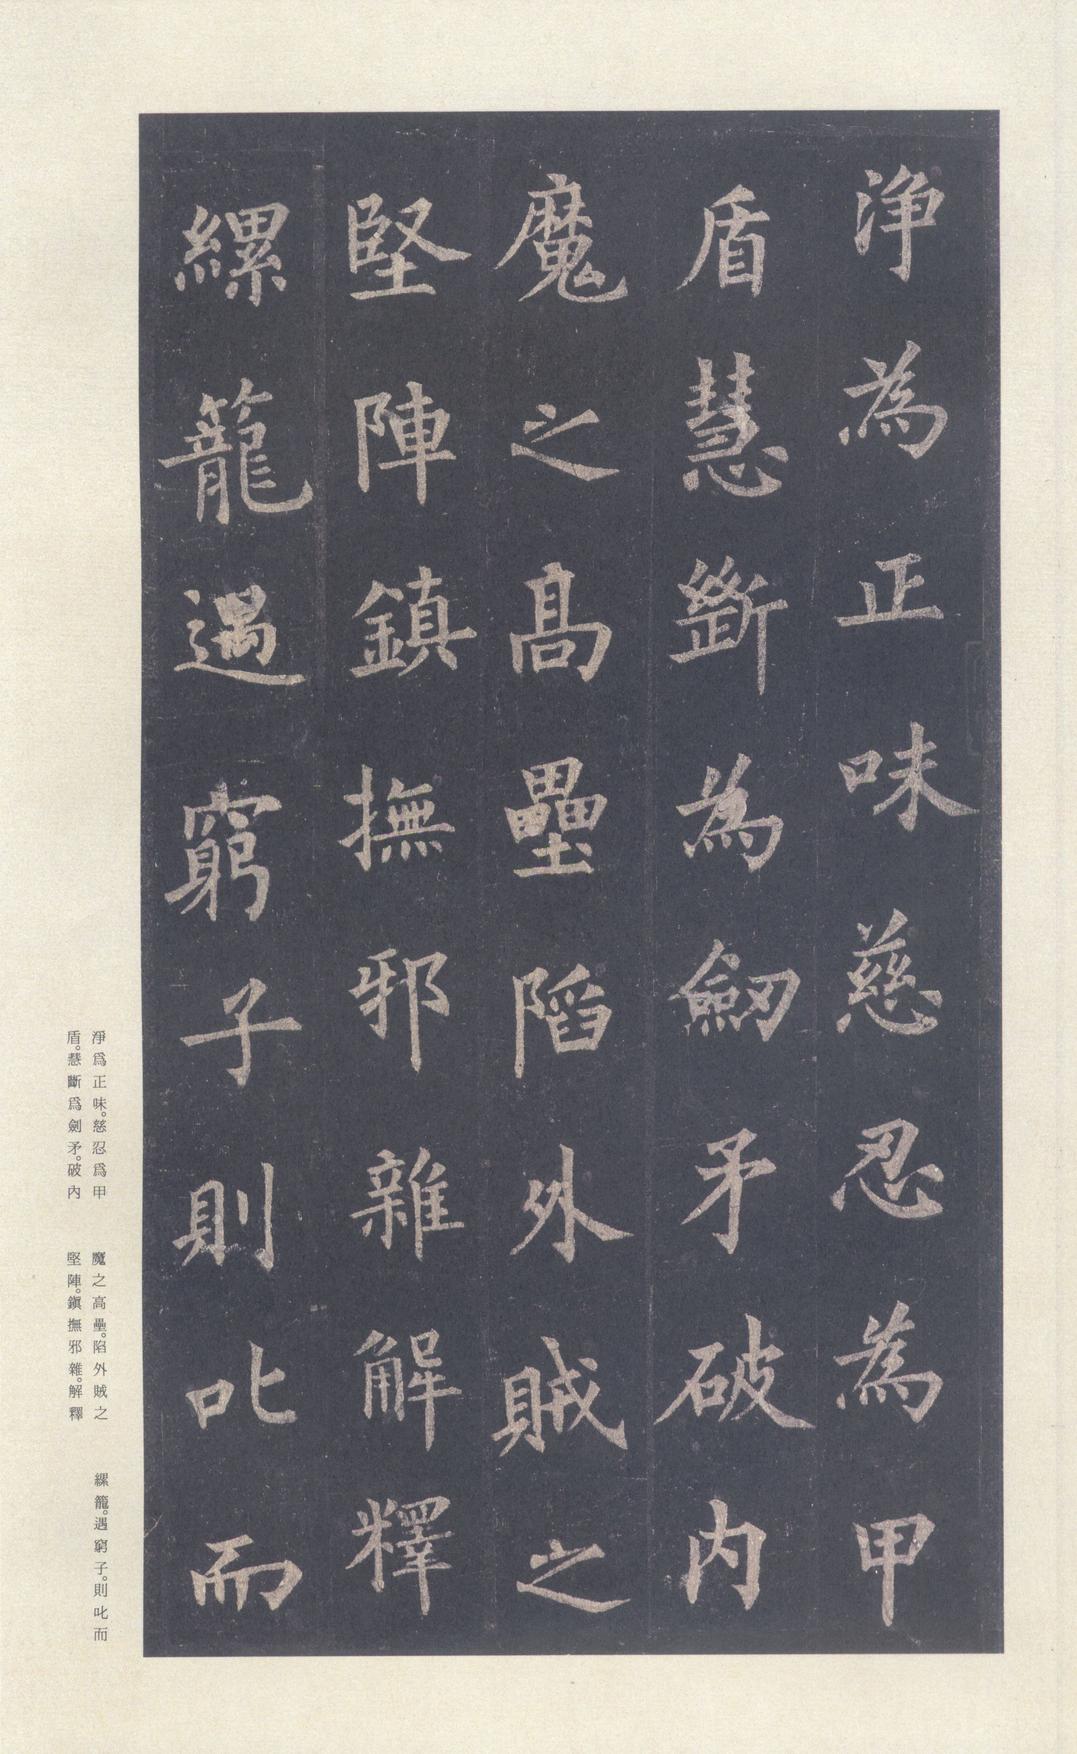 淨為正味慈忍為甲
盾慧斷為劒矛破内
魔之髙壘陷外賊之
堅陣鎮撫邪雜解釋
縲籠遇窮子則叱而
淨爲正味。慈忍爲甲
盾。慧斷爲劍矛。破內
魔之高壘。陷外賊之
堅陣。鎭撫邪雜。解釋
縲籠。遇窮子。則叱而